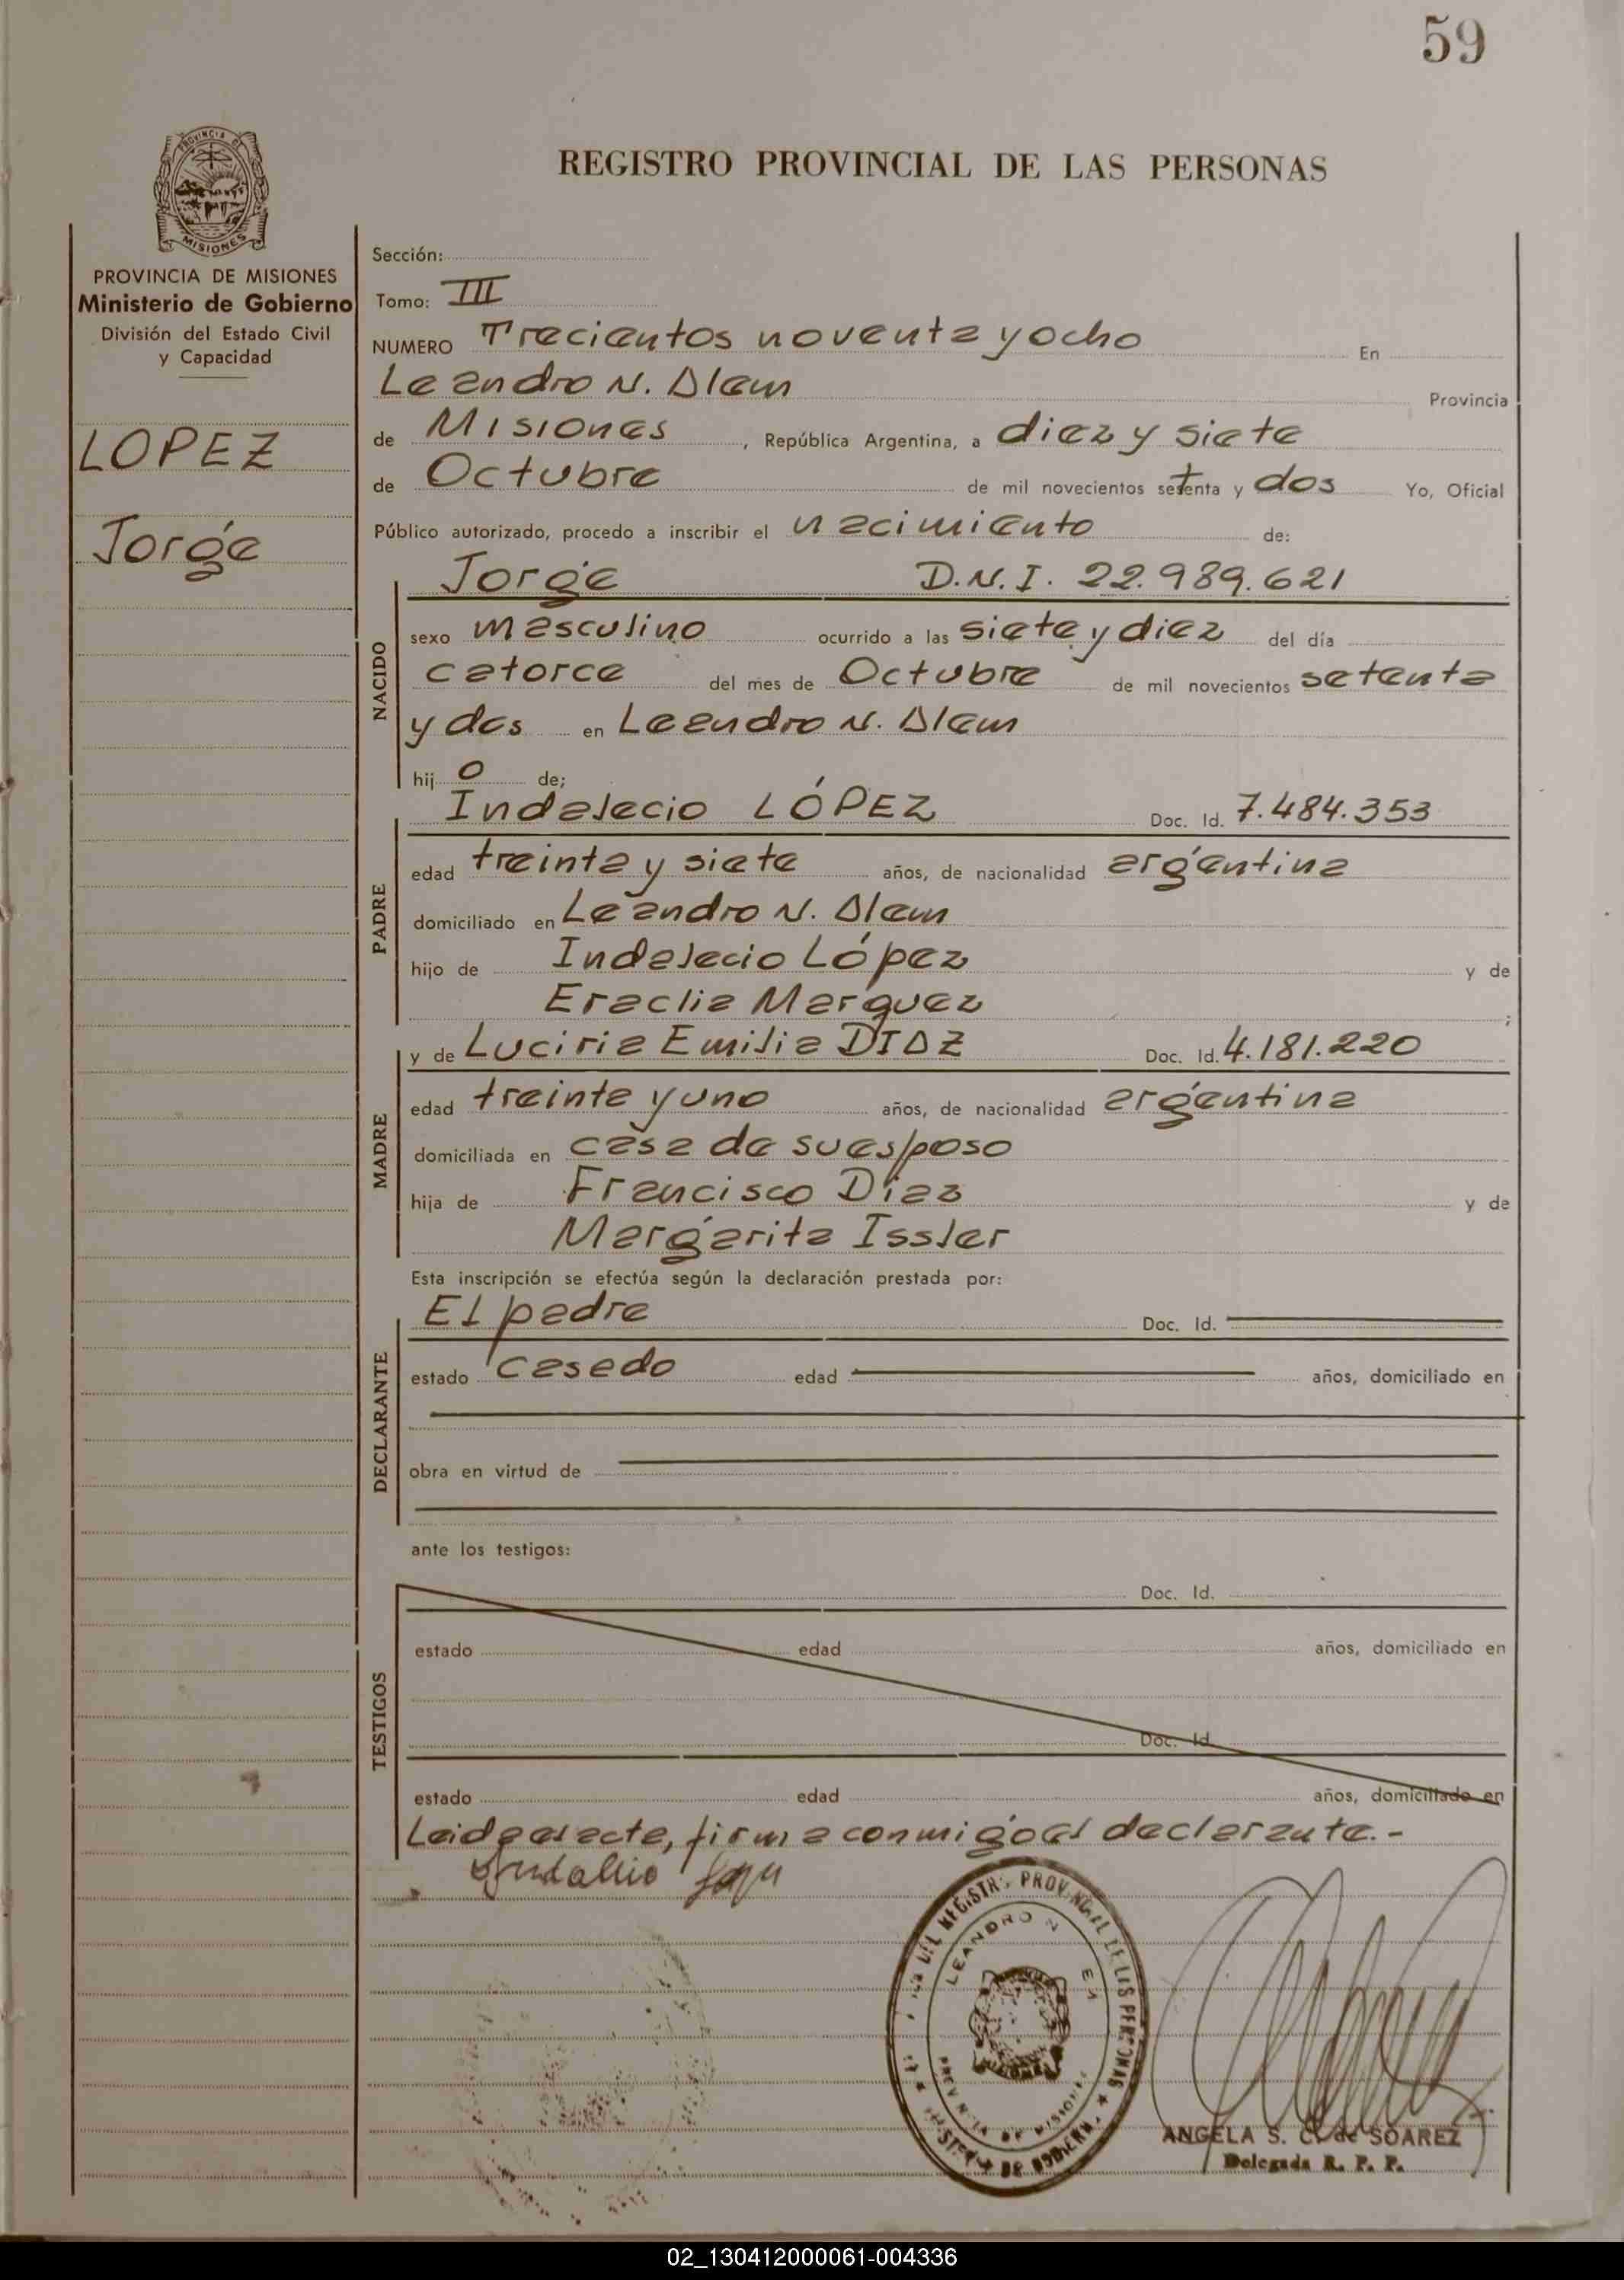 59
REGISTRO PROVINCIAL DE LAS PERSONAS
PROVINCIA DE MISIONES
Ministerio de Gobierno
División del Estado Civil
y Capacidad
LOPEZ
Jorge
Sección:
Tomo: III
NUMERO Trecientos noventa y ocho En
Leandro N. Alem Provincia
de Misiones, República Argentina, a diez y siete
de Octubre de mil novecientos setenta y dos Yo, Oficial
Público autorizado, procedo a inscribir el nacimiento de:
Jorge D.N.I. 22.989.621
NACIDO
sexo masculino ocurrido a las siete y diez del día
catorce del mes de Octubre de mil novecientos setenta
y dos en Leandro N. Alem
hij o de;
Indalecio LÓPEZ Doc. Id. 7.484.353
PADRE
edad treinta y siete años, de nacionalidad argentina
domiciliado en Leandro N. Alem
hijo de Indalecio López y de
Eraclia Marquez ;
y de Luciria Emilia DIAZ Doc. Id. 4.181.220
MADRE
edad treinta y uno años, de nacionalidad argentina
domiciliada en casa de su esposo
hija de Francisco Díaz y de
Margarita Issler
Esta inscripción se efectúa según la declaración prestada por:
El padre Doc. Id.
DECLARANTE
estado casado edad años, domiciliado en
obra en virtud de
ante los testigos:
Doc. Id.
TESTIGOS
estado edad años, domiciliado en
Doc. Id.
estado edad años, domiciliado en
Leida el acta, firma conmigo el declarante.-
LEANDRO N
PROVINCIA DE MISIONES
ANGELA S. C. de SOAREZ
Delegada R. P. P.
02_130412000061-004336